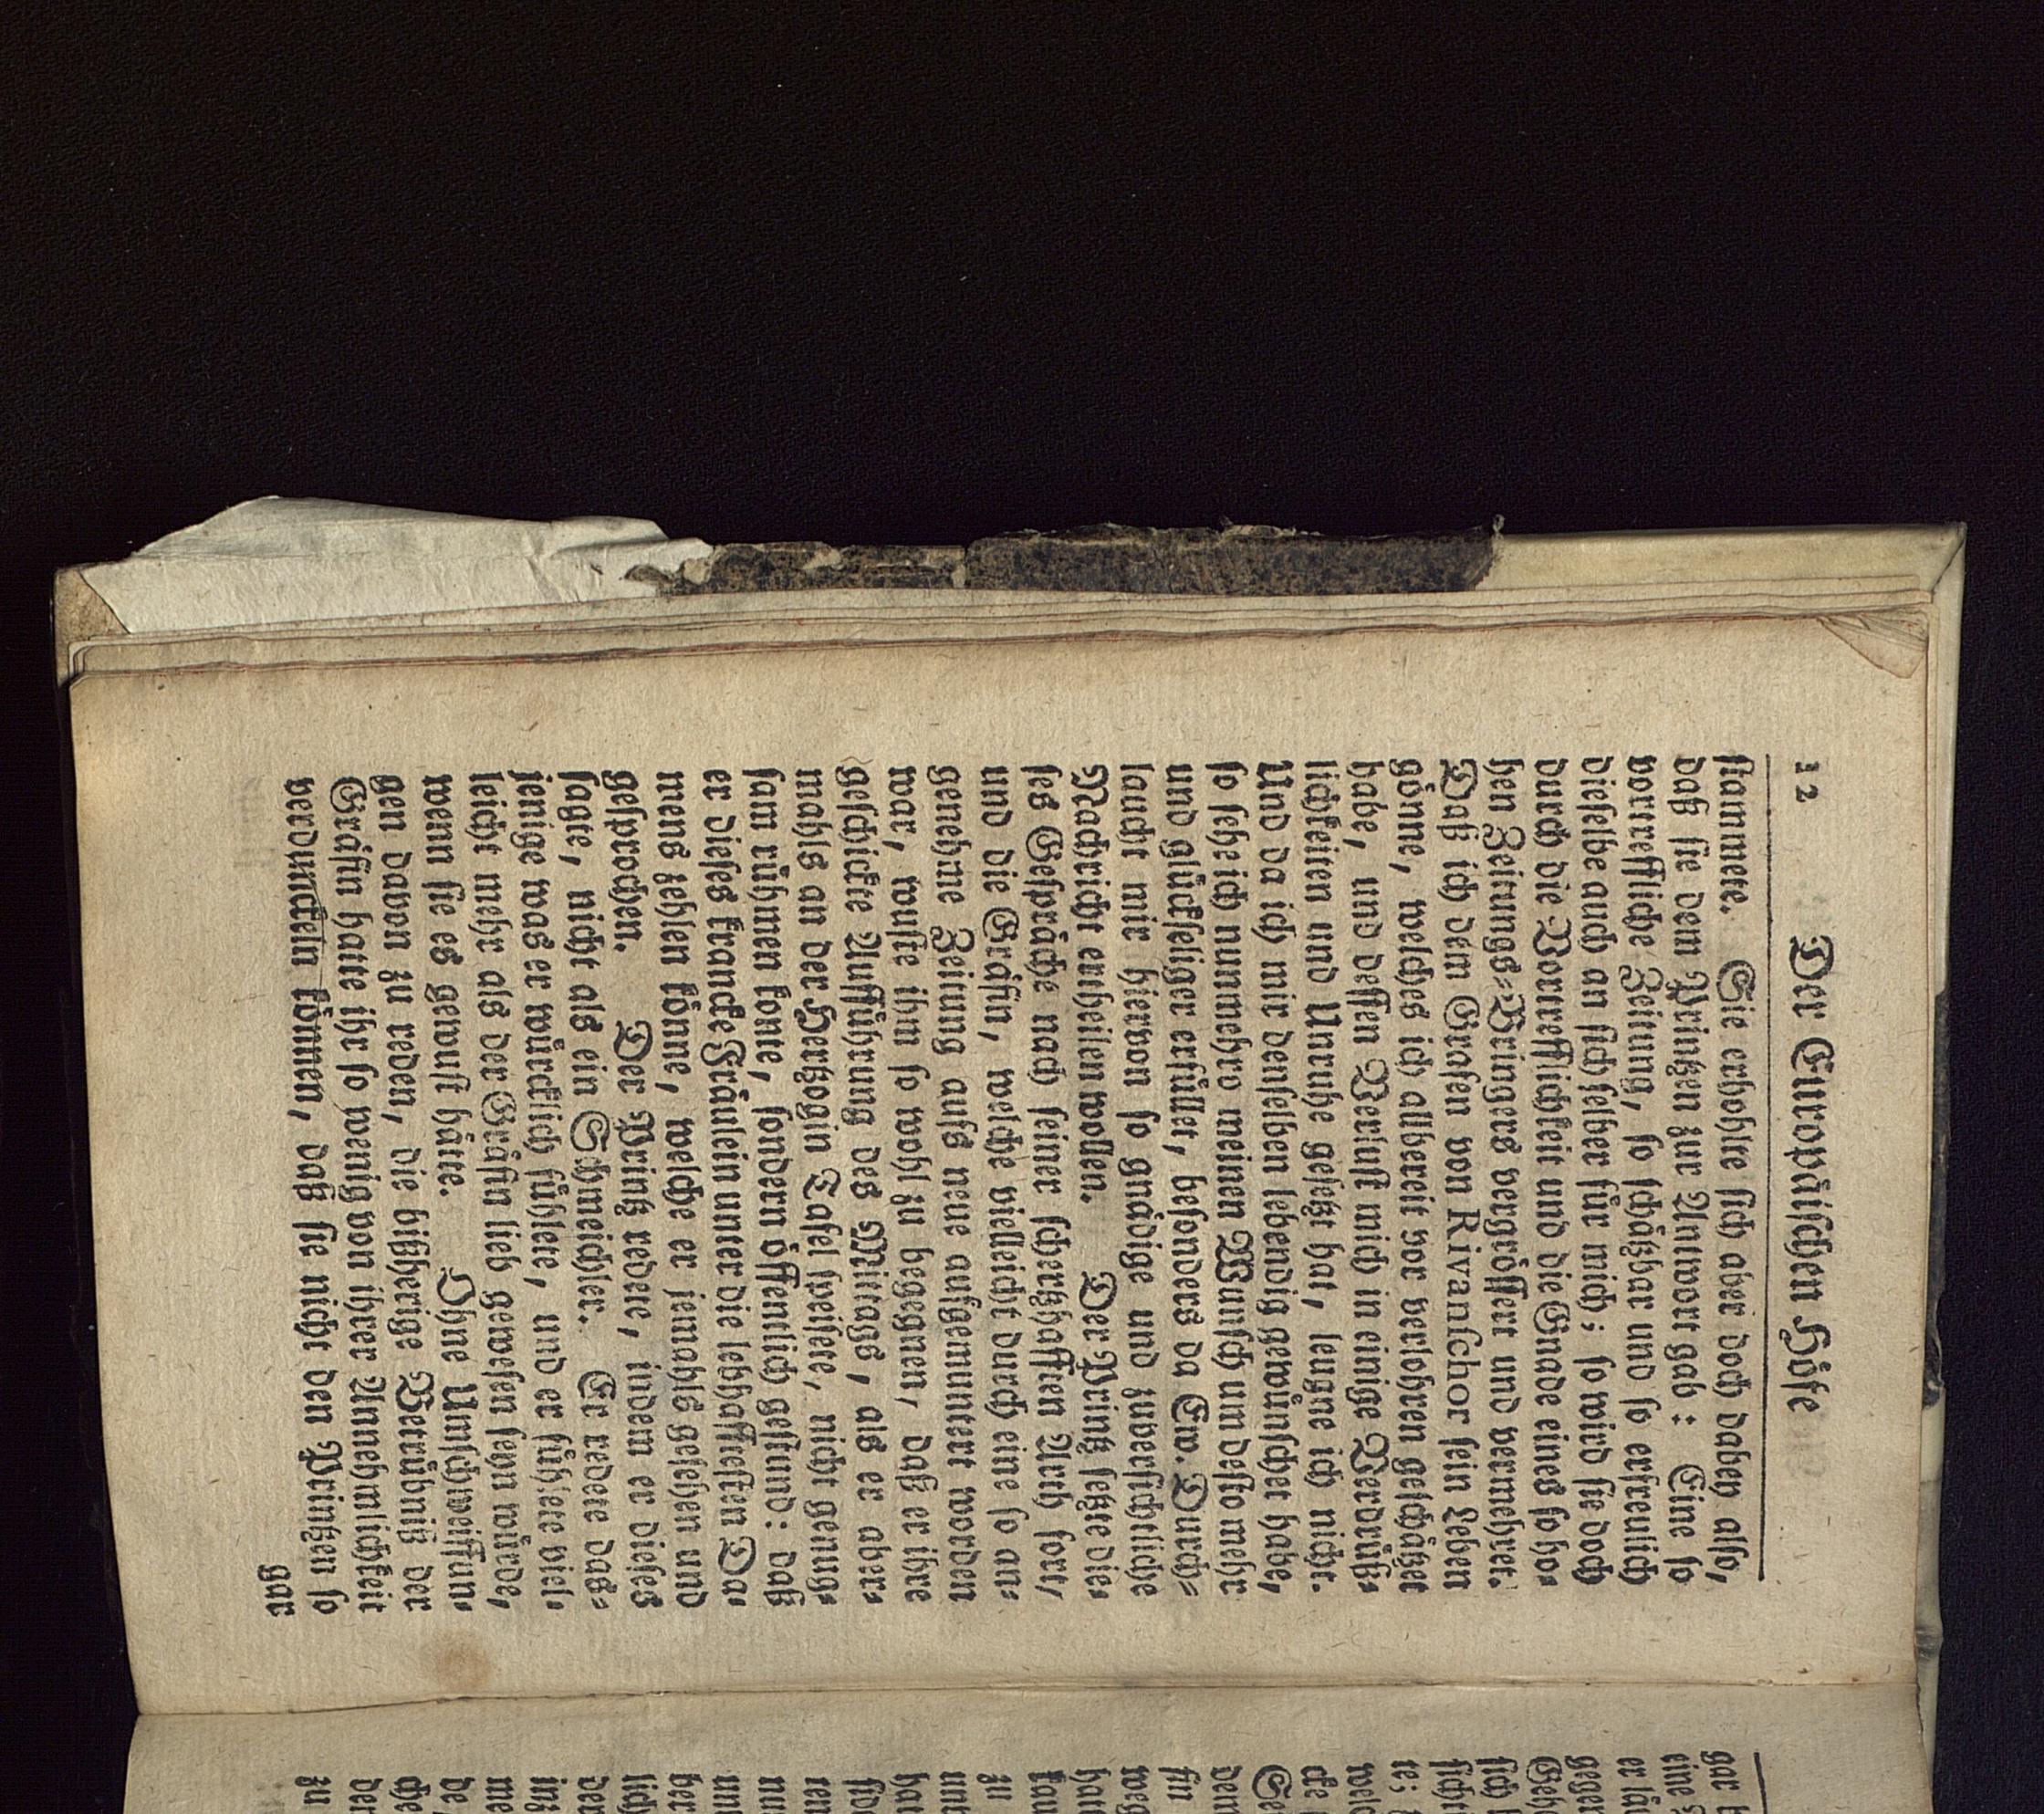 12 Der Europäischen Höfe
stammete. Sie erholte sich aber doch dabey also,
daß sie dem Printzen zur Antwort gab: Eine so
vortreffliche Zeitung, so schätzbar und so erfreulich
dieselbe auch an sich selber für mich; so wird sie doch
durch die Vortrefflichkeit und die Gnade eines soho-
hen Zeitungs-Bringers vergrössert und vermehret.
Daß ich dem Grafen von Rivanschor sein Leben
gönne, welches ich allbereit vor verlohren geschätzet
habe, und dessen Verlust mich in einige Verdrüß-
lichkeiten und Unruhe gesetzt hat, leugne ich nicht.
Und da ich mir denselben lebendig gewünschet habe,
so sehe ich nunmehro meinen Wunsch um desto mehr
und glückseliger erfüllet, besonders da Ew. Durch-
laucht mir hiervon so gnädige und zuversichtliche
Nachricht ertheilen wollen. Der Printz setzte die-
ses Gespräche nach seiner schertzhafften Arth fort,
und die Gräfin, welche vielleicht durch eine so an-
genehme Zeitung aufs neue aufgemuntert worden
war, wuste ihm so wohl zu begegnen, daß er ihre
geschickte Aufführung des Mittags, als er aber-
mahls an der Hertzogin Tafel speisete, nicht genug-
sam rühmen konte, sondern öffentlich gestund: daß
er dieses krancke Fräulein unter die lebhafftesten Da-
mens zehlen könne, welche er jemahls gesehen und
gesprochen. Der Printz redete, indem er dieses
sagte, nicht als ein Schmeichler. Er redete das-
jenige was er würcklich fühlete, und er fühlete viel-
leicht mehr als der Gräfin lieb gewesen seyn würde,
wenn sie es gewust hätte. Ohne Umschweiffun-
gen davon zu reden, die bißherige Betrübniß der
Gräfin hatte ihr so wenig von ihrer Annehmlichkeit
verdunckeln können, daß sie nicht den Printzen so
gar